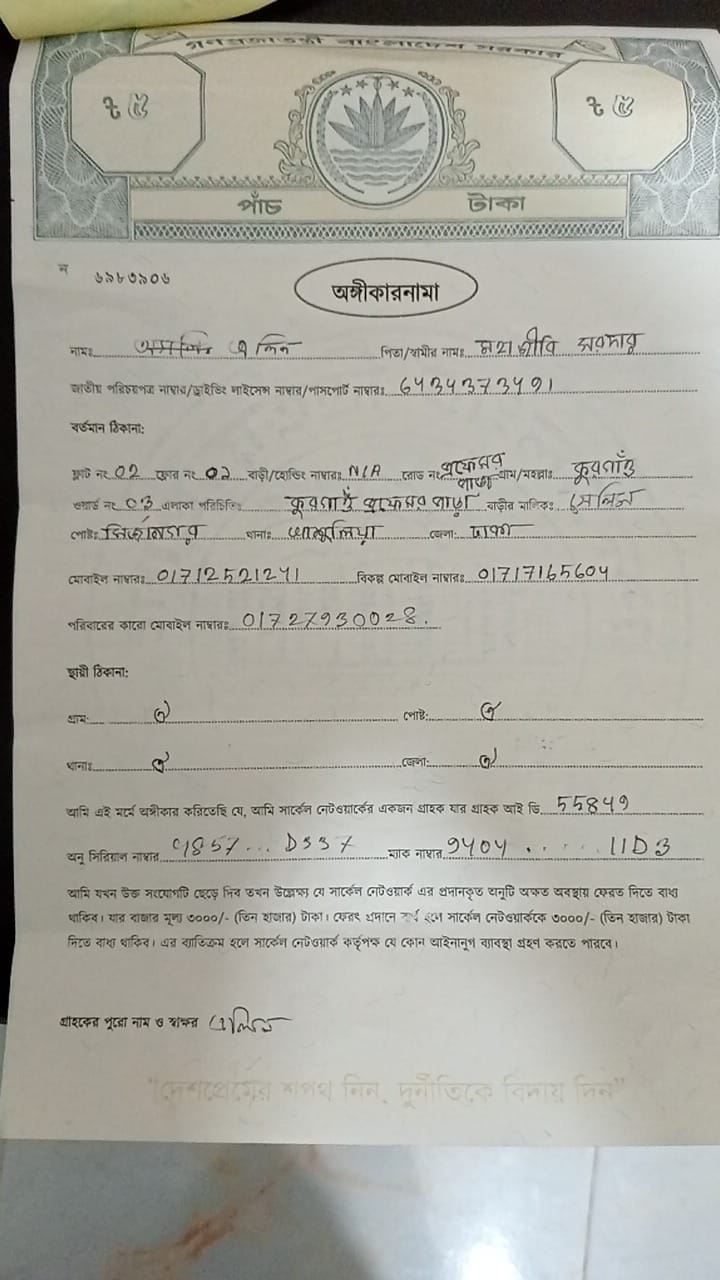 গণপ্রজাতন্ত্রী বাংলাদেশ সরকার
৳ ৫ ৳ ৫
পাঁচ টাকা
ন ৬৯৮৩৯০৬
অঙ্গীকারনামা
নামঃ এ লিন পিতা/স্বামীর নামঃ সরদার
জাতীয় পরিচয়পত্র নাম্বার/ড্রাইভিং লাইসেন্স নাম্বার/পাসপোর্ট নাম্বারঃ 6434373491
বর্তমান ঠিকানা:
ফ্লাট নং 02 ফ্লোর নং 02 বাড়ী/হোল্ডিং নাম্বারঃ N/A রোড নং প্রফেসর পাড়া গ্রাম/মহল্লাঃ কুরগাঁও
ওয়ার্ড নং 03 এলাকা পরিচিতিঃ কুরগাঁও প্রফেসর পাড়া বাড়ীর মালিকঃ সেলিম
পোষ্টঃ মির্জানগর থানাঃ আশুলিয়া জেলা: ঢাকা
মোবাইল নাম্বারঃ 01712521241 বিকল্প মোবাইল নাম্বারঃ 01717165604
পরিবারের কারো মোবাইল নাম্বারঃ 01727930028.
স্থায়ী ঠিকানা:
গ্রাম: ঐ পোষ্ট: ঐ
থানাঃ ঐ জেলা: ঐ
আমি এই মর্মে অঙ্গীকার করিতেছি যে, আমি সার্কেল নেটওয়ার্কের একজন গ্রাহক যার গ্রাহক আই ডি 55849
অনু সিরিয়াল নাম্বার 4857... D537 ম্যাক নাম্বার 9404 ..... 11D3
আমি যখন উক্ত সংযোগটি ছেড়ে দিব তখন উল্লেক্ষ্য যে সার্কেল নেটওয়ার্ক এর প্রদানকৃত অনুটি অক্ষত অবস্থায় ফেরত দিতে বাধ্য
থাকিব। যার বাজার মূল্য ৩০০০/- (তিন হাজার) টাকা। ফেরৎ প্রদানে ব্যর্থ হলে সার্কেল নেটওয়ার্ককে ৩০০০/- (তিন হাজার) টাকা
দিতে বাধ্য থাকিব। এর ব্যতিক্রম হলে সার্কেল নেটওয়ার্ক কর্তৃপক্ষ যে কোন আইনানুগ ব্যাবস্থা গ্রহণ করতে পারবে।
গ্রাহকের পুরো নাম ও স্বাক্ষর
"দেশপ্রেমের শপথ নিন, দুর্নীতিকে বিদায় দিন"